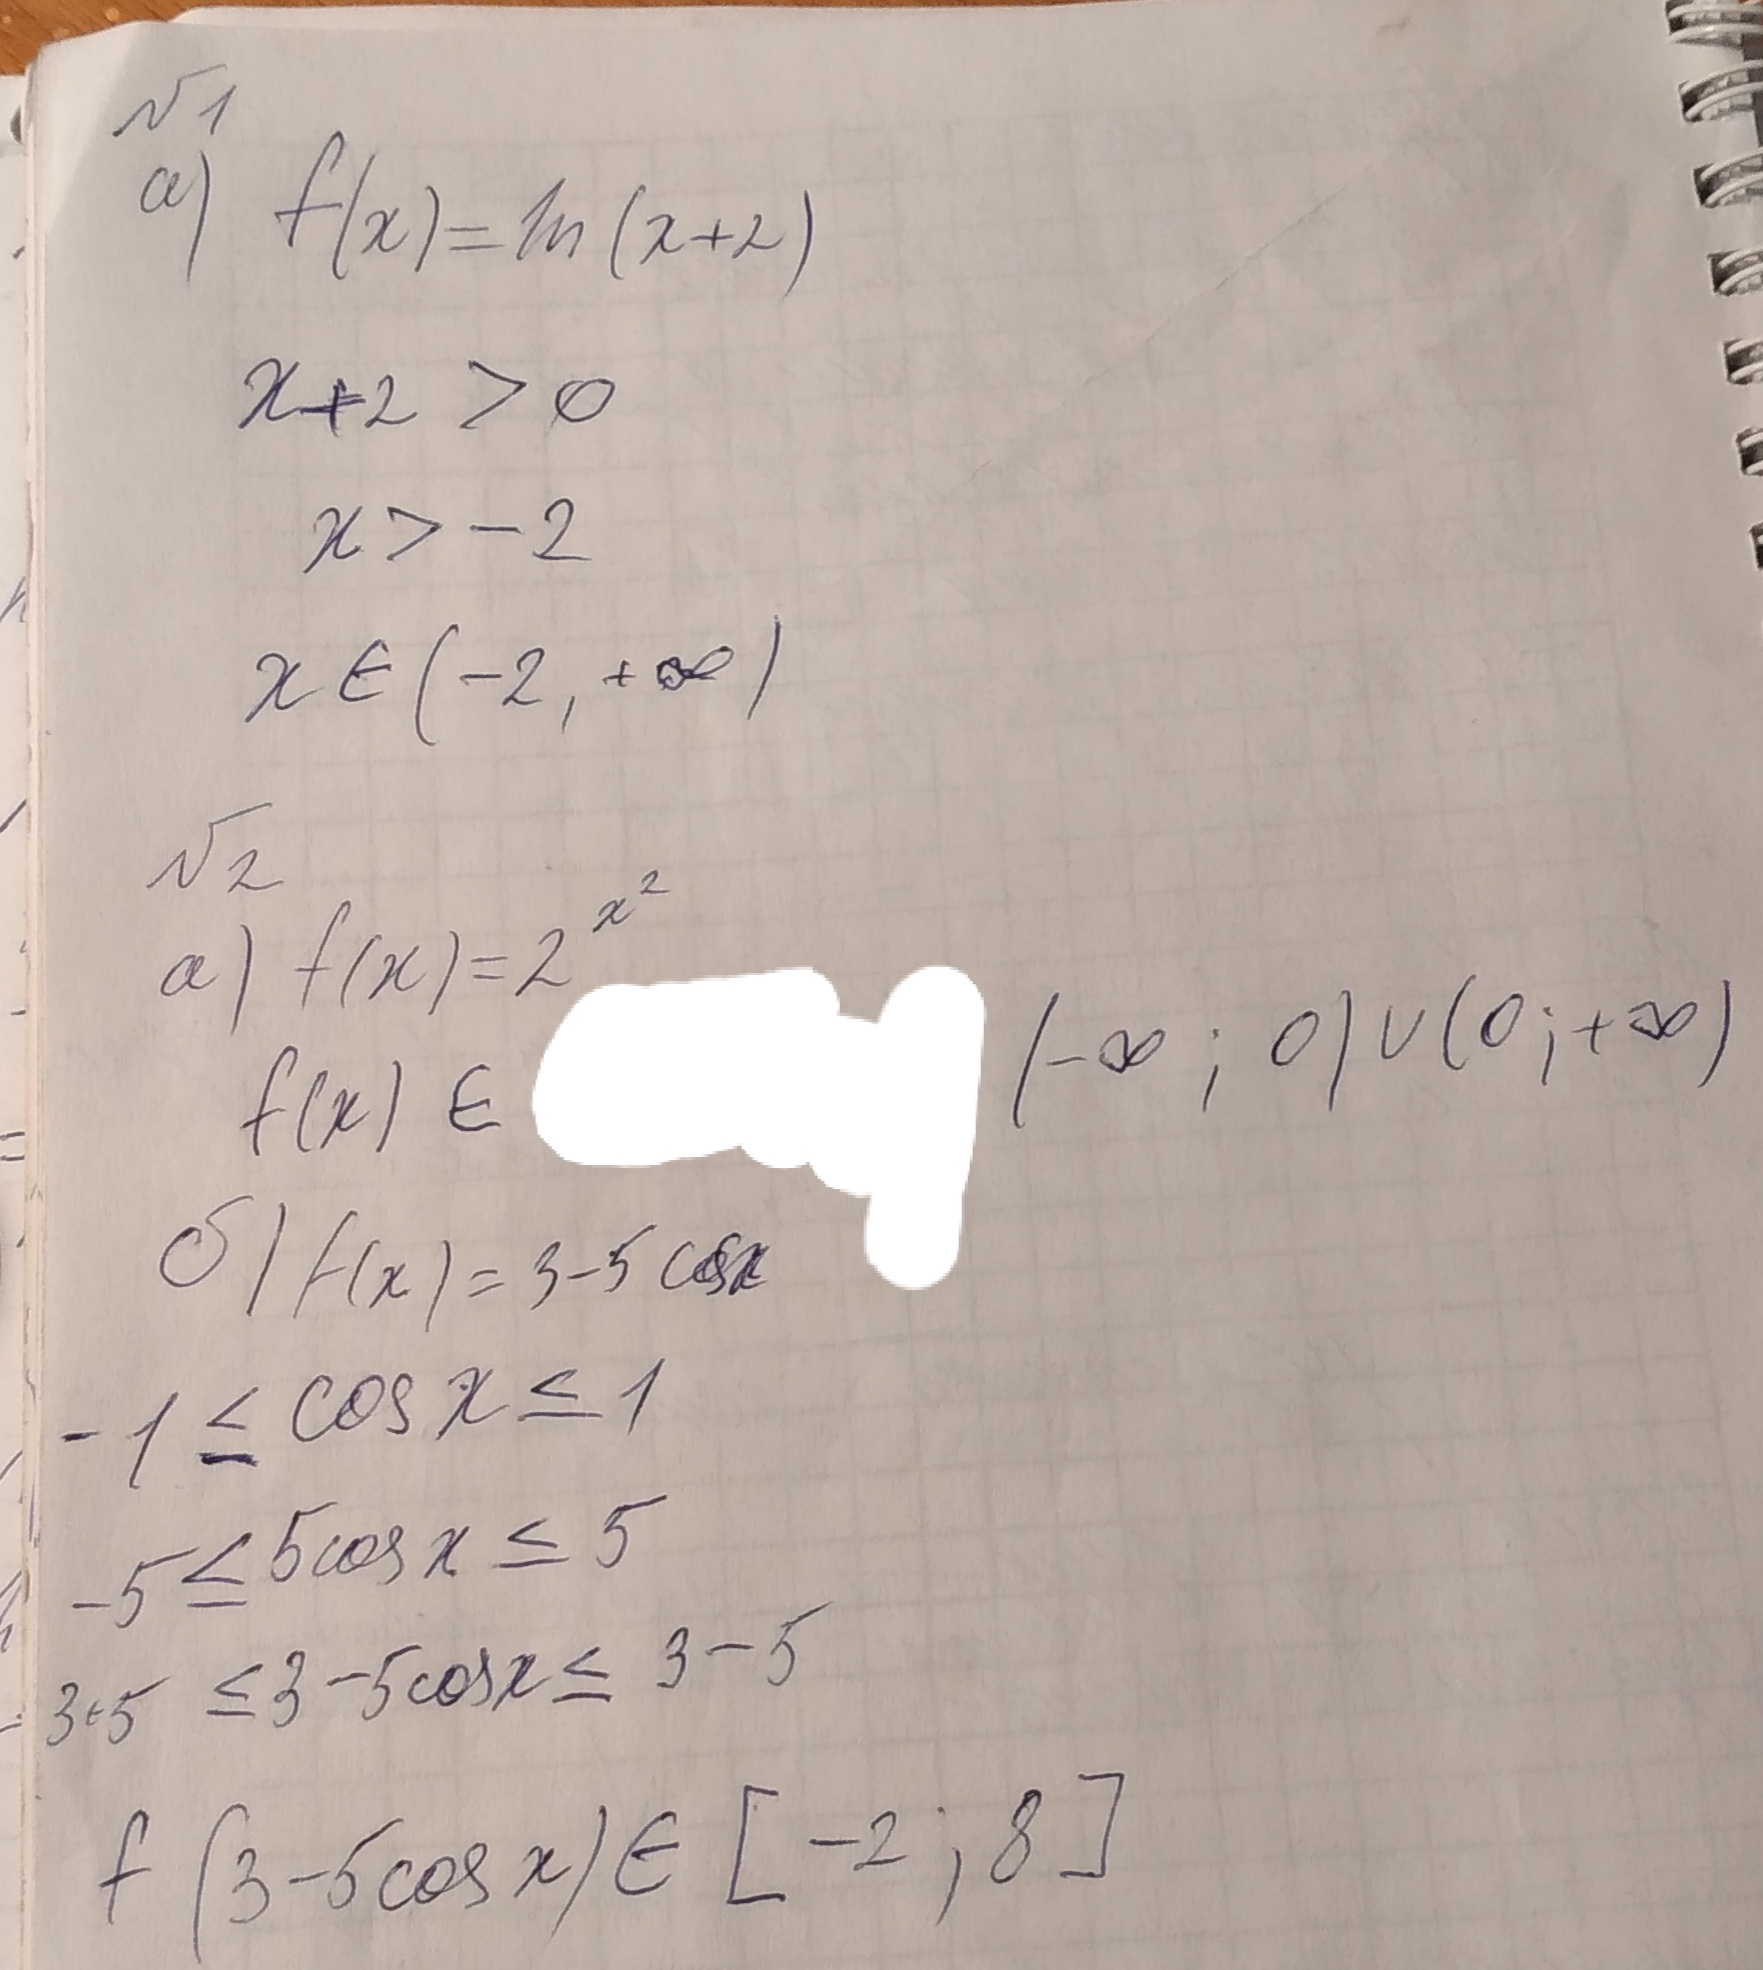 №1
а) f(x)=ln(x+2)
x+2 >0
x>-2
x∈(-2,+∞)
№2
а) f(x)=2^{x^2}
f(x) ∈ (-∞; 0)∪(0;+∞)
б) f(x)=3-5 cosx
-1 ≤ cos x ≤ 1
-5 ≤ 5cos x ≤ 5
3+5 ≤ 3-5cosx ≤ 3-5
f(3-5cos x)∈[-2;8]